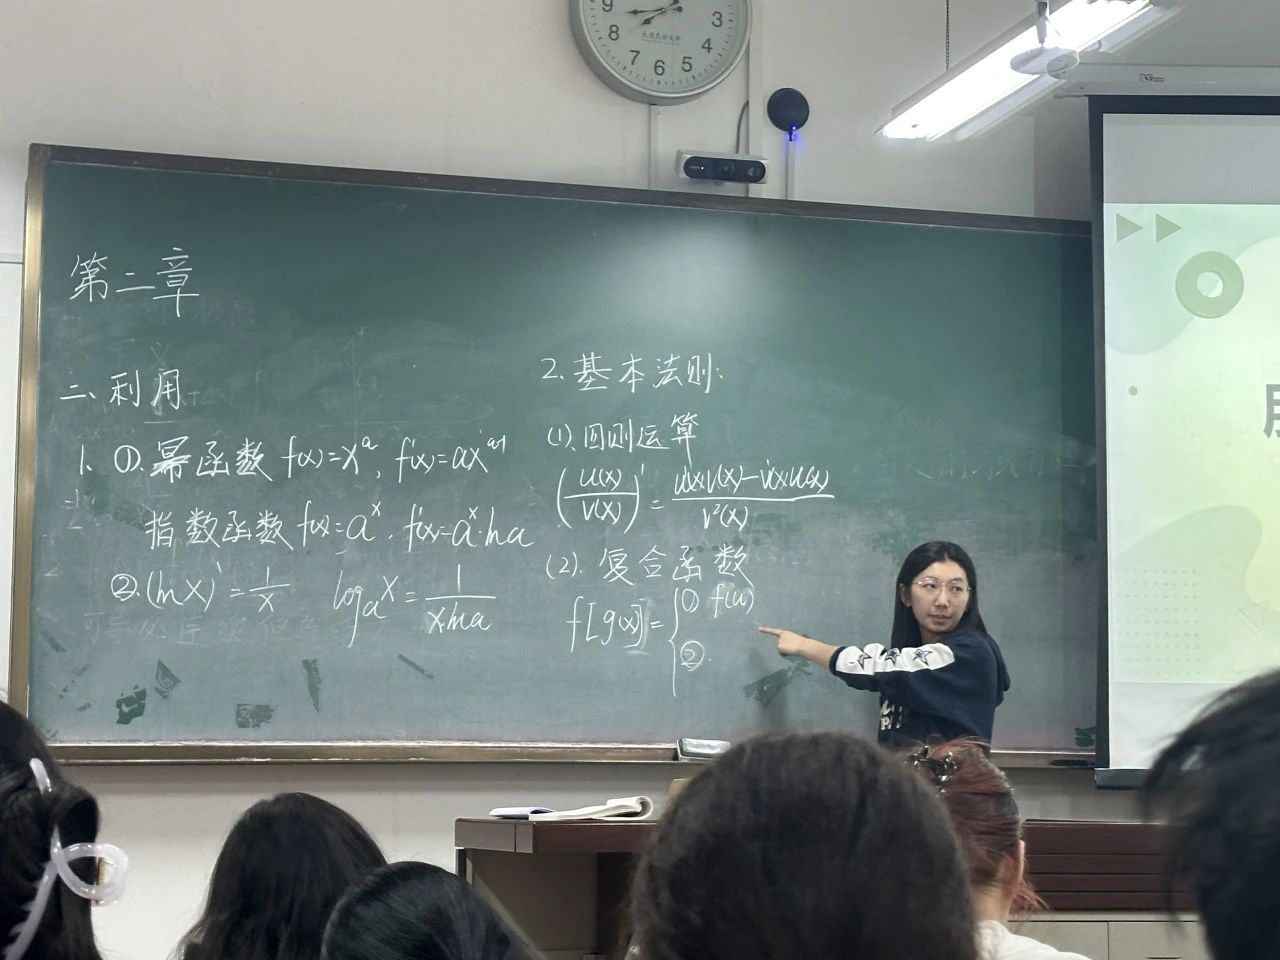 9
8
7
6
5
4
3
大连民族大学
第二章
二、利用
1. ①.幂函数 f(x)=xᵃ, f'(x)=axᵃ⁻¹
指数函数 f(x)=aˣ, f'(x)=aˣ·lna
②.(lnx)'=1/x logₐx=1/xlna
2.基本法则:
(1).四则运算
(u(x)/v(x))'=u'(x)v(x)-v'(x)u(x)/v²(x)
(2).复合函数
f[g(x)]={① f(u)
②.